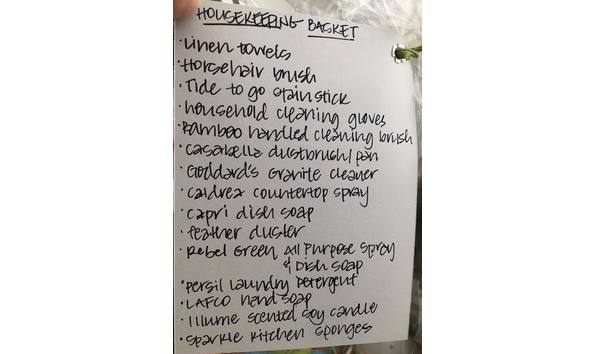 HOUSEKEEPING BASKET
· Linen towels
· Horsehair brush
· Tide to go stain stick
· household cleaning gloves
· Bamboo handled cleaning brush
· casabella dustbrush/pan
· Goddard's Granite cleaner
· caldrea countertop spray
· capri dish soap
· feather duster
· Rebel Green All Purpose Spray
& Dish Soap
· Persil Laundry Detergent
· LAFCO hand soap
· Illume scented soy candle
· Sparkle kitchen sponges